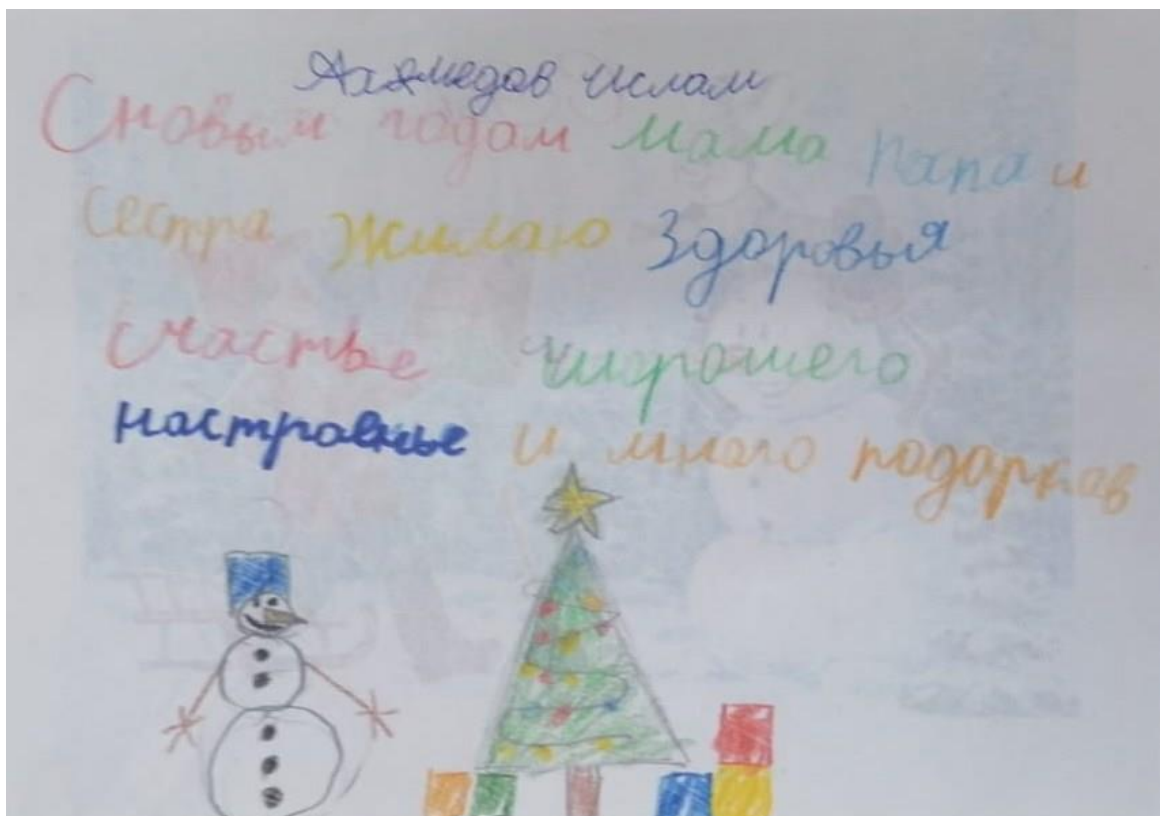 Аахмедов Ислам
Сновым годам мама папа и
сестра жилаю здоровья
счастье хиорошего
настроенье и много подаркав